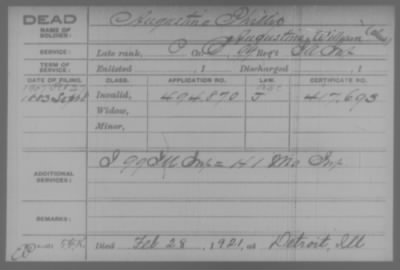 DEAD
NAME OF SOLDIER: Augustine Phillip
Augustin, William (alias)
SERVICE: Late rank, Co. 99 Reg't Ill Inf
TERM OF SERVICE: Enlisted , 1 Discharged , 1
DATE OF FILING. CLASS. APPLICATION NO. LAW. CERTIFICATE NO.
1883 Sept Invalid, 494,870 J 417,693
Widow,
Minor,
ADDITIONAL SERVICES: I 99 Ill Inf = H 1 Mo Inf
REMARKS:
Died Feb 28, 1921, at Detroit, Ill